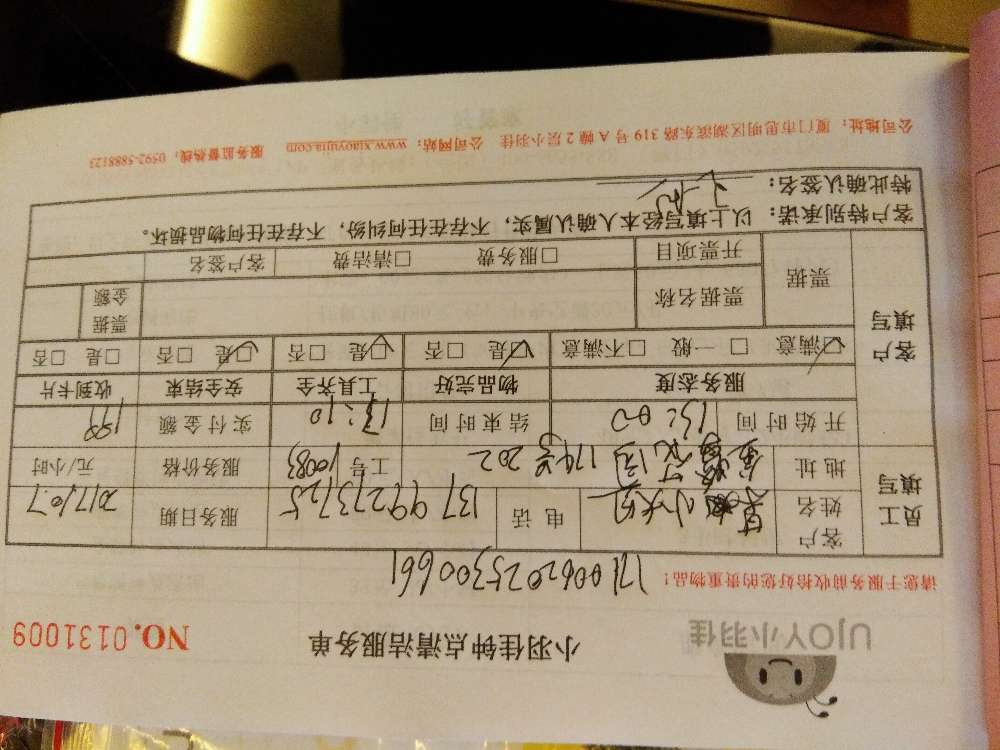 UJOY小羽佳
小羽佳钟点清洁服务单
NO.0131009
请您于服务前收拾好您的贵重物品！
17100620253 00661
员工填写
客户姓名 小姐 电话 13799273725 服务日期 2017.10.7
地址 174号202 工号 10083 服务价格 元/小时
开始时间 13:00 结束时间 17:10 实付金额 199
客户填写
服务态度 物品完好 工具齐全 安全结束 收到卡片
☑满意 □一般 □不满意 ☑是 □否 ☑是 □否 ☑是 □否 □是 □否
票据 票据名称 票据金额
开票项目 □服务费 □清洁费 客户签名
客户特别承诺：以上填写经本人确认属实，不存在任何纠纷，不存在任何物品损坏。
特此确认签名：
公司地址：厦门市思明区湖滨东路319号A幢2层小羽佳 公司网站：www.xiaoyujia.com 服务监督热线：0592-5888123